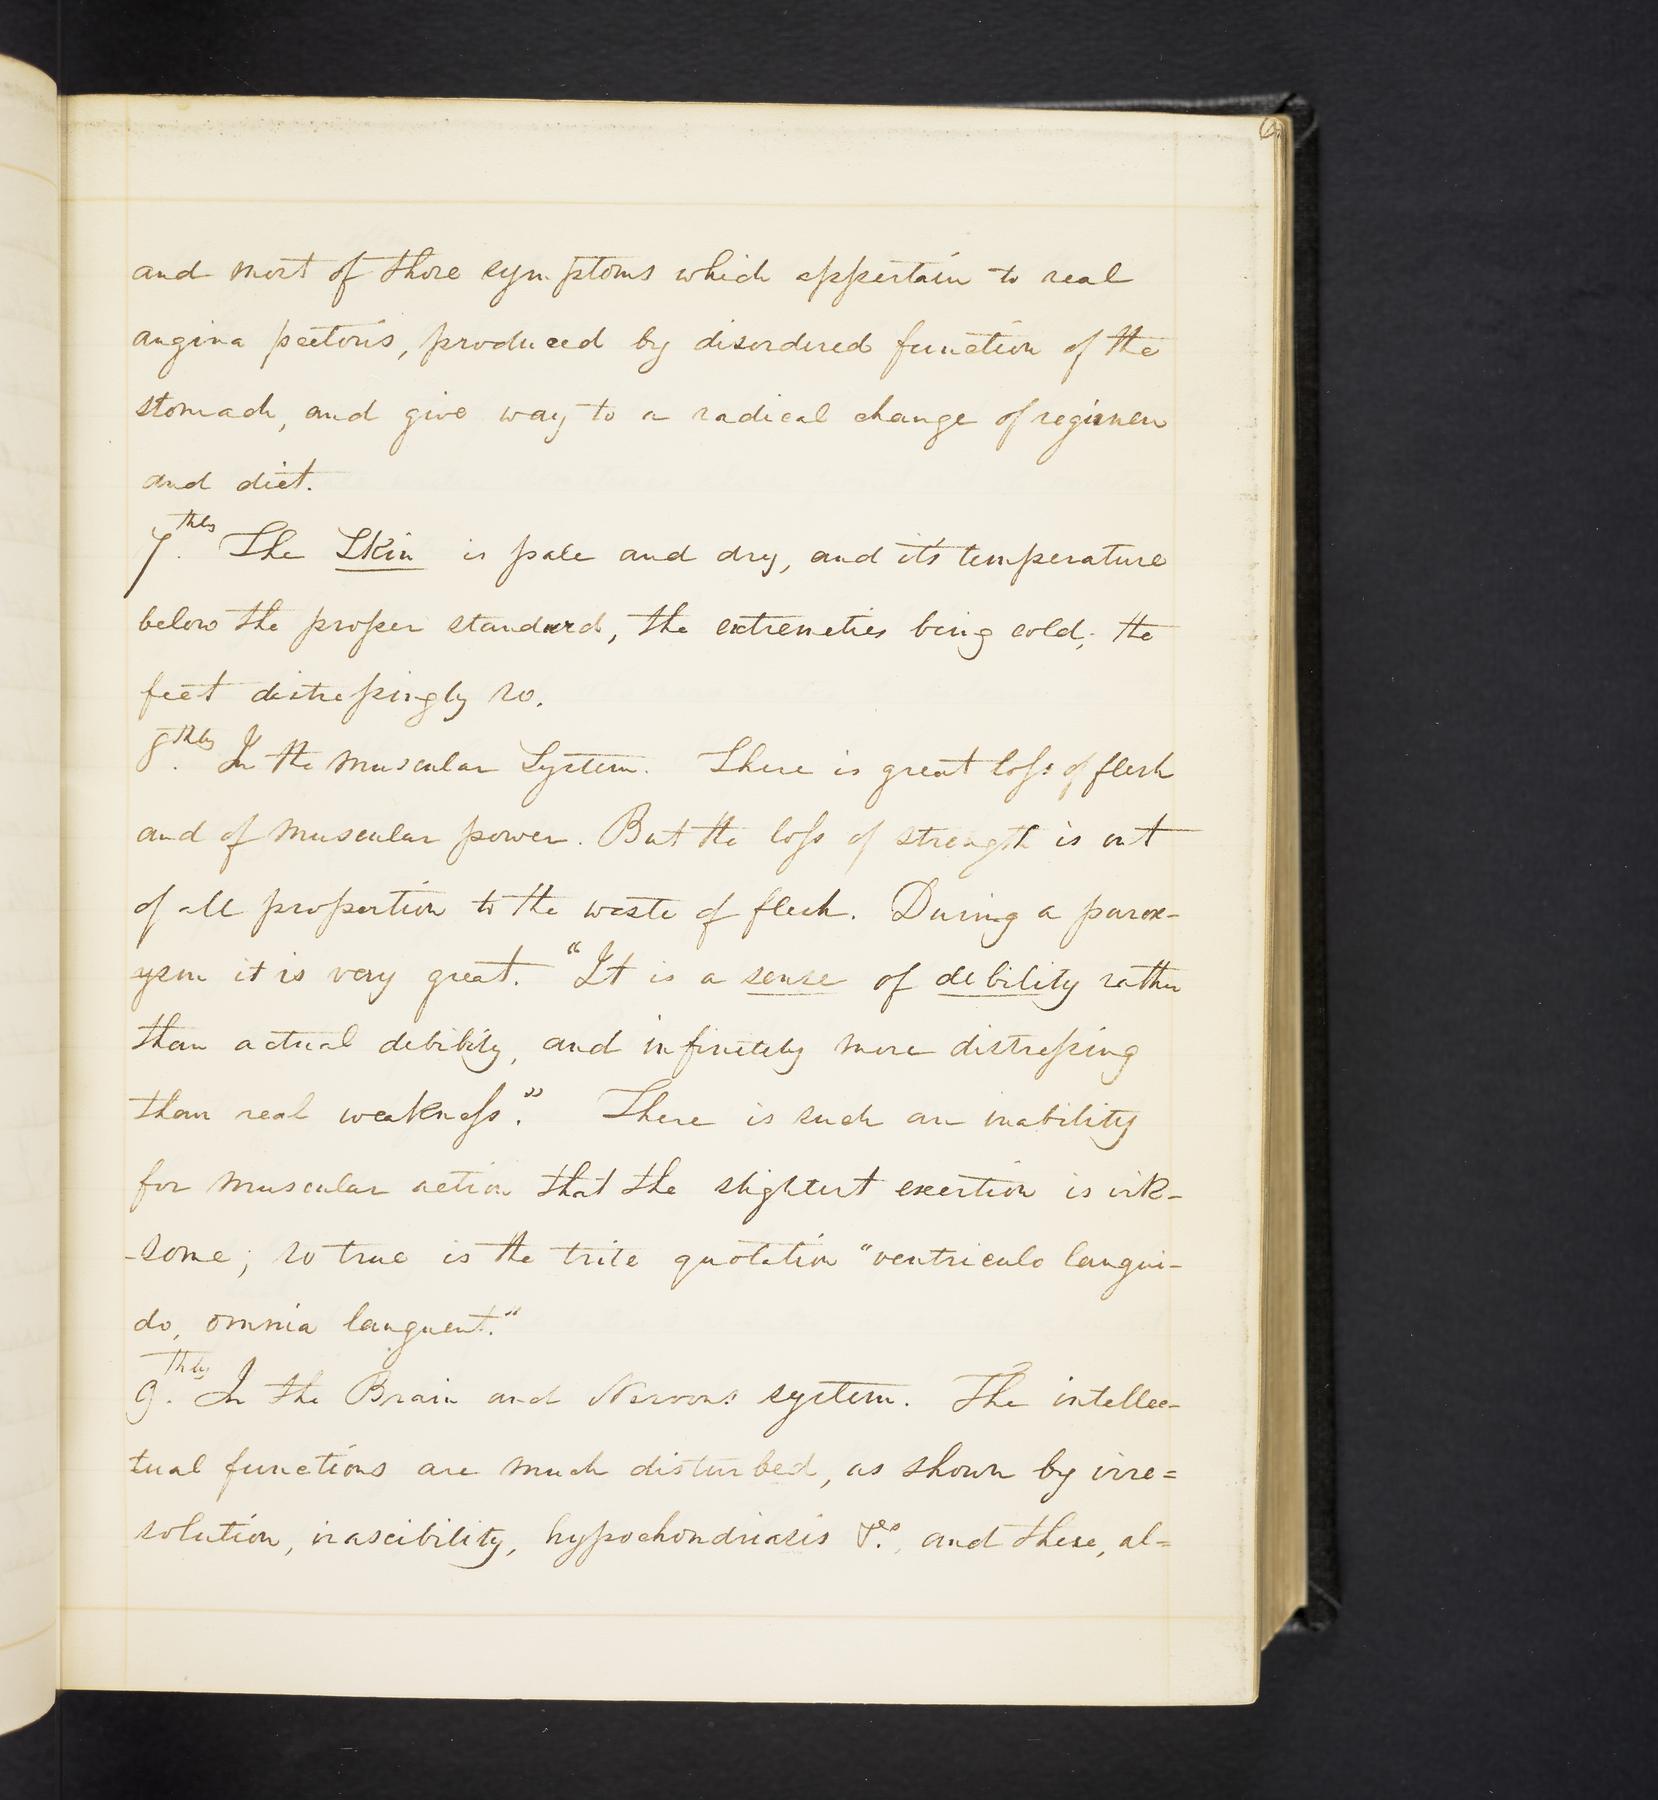 6.
and most of those symptoms which appertain to real
angina pectoris, produced by disordered function of the
stomach, and give way to a radical change of regimen
and diet.
7.thly The Skin is pale and dry, and it's temperature
below the proper standard, the extremeties being cold; the
feet distressingly so.
8.thly In the muscular System. There is great loss of flesh
and of muscular power. But the loss of strength is out
of all proportion to the waste of flesh. During a parox-
ysm it is very great. "It is a sense of debility rather
than actual debility, and infinitely more distressing
than real weakness." There is such an inability
for muscular action that the slightest exertion is irk-
-some; so true is the trite quotation "ventriculo langui-
do, omnia languent."
9.thly In the Brain and Nervous system. The intellec-
tual functions are much disturbed, as shown by irre=
solution, irascibility, hypochondriasis &c., and these, al=